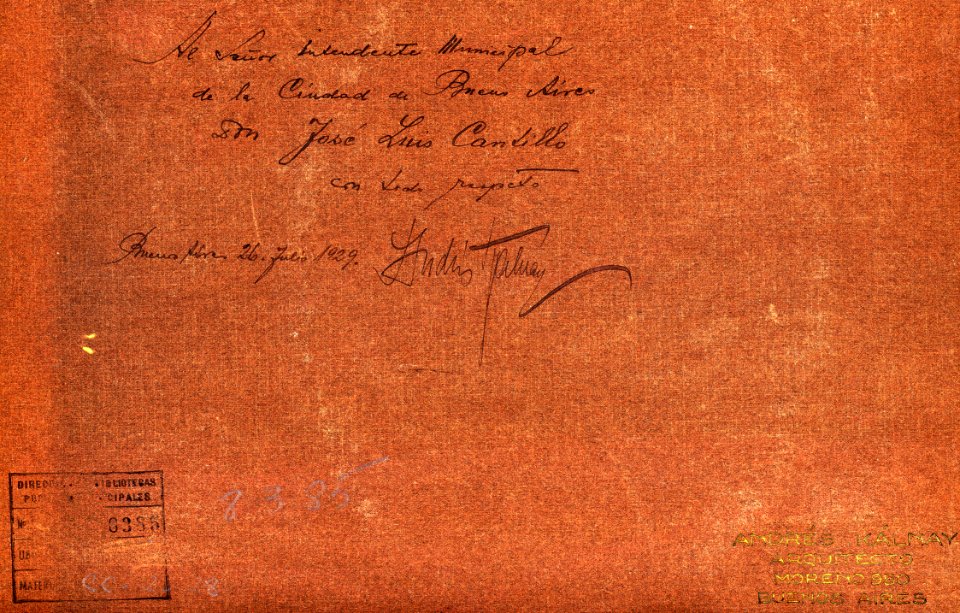 Al Señor Intendente Municipal
de la Ciudad de Buenos Aires
Don José Luis Cantillo
con todo respeto
Buenos Aires 26. Julio 1929. Andrés Kálnay
BIBLIOTECAS
CIPALES
ANDRÉS KÁLNAY
ARQUITECTO
MORENO
BUENOS AIRES